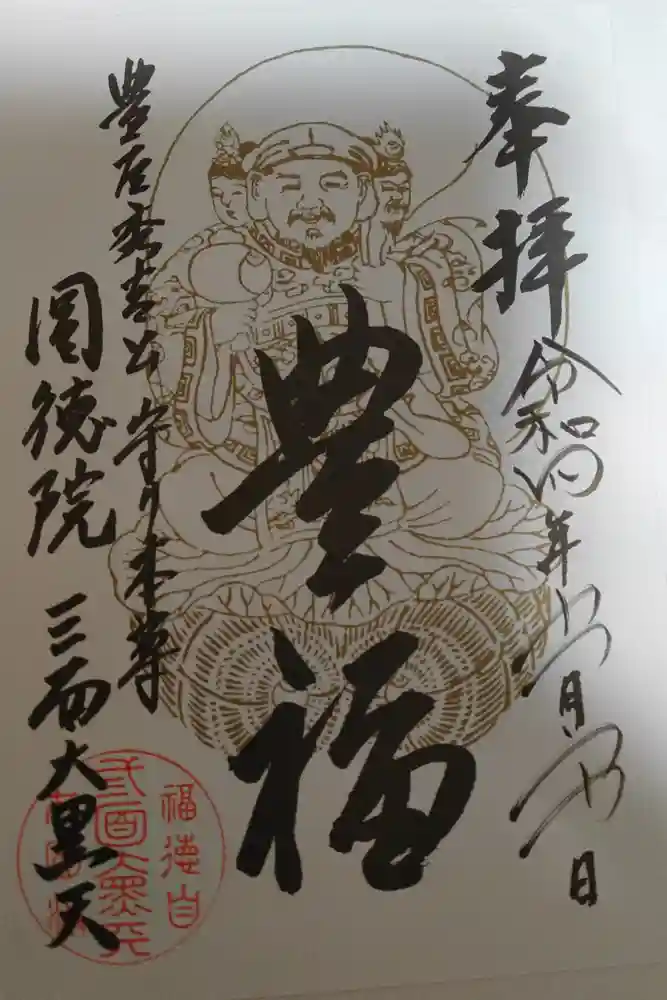 奉拝 令和四年 月 日
豊福
豊臣秀吉公 守り本尊
圓徳院 三面大黒天
福徳自
三面大黒天